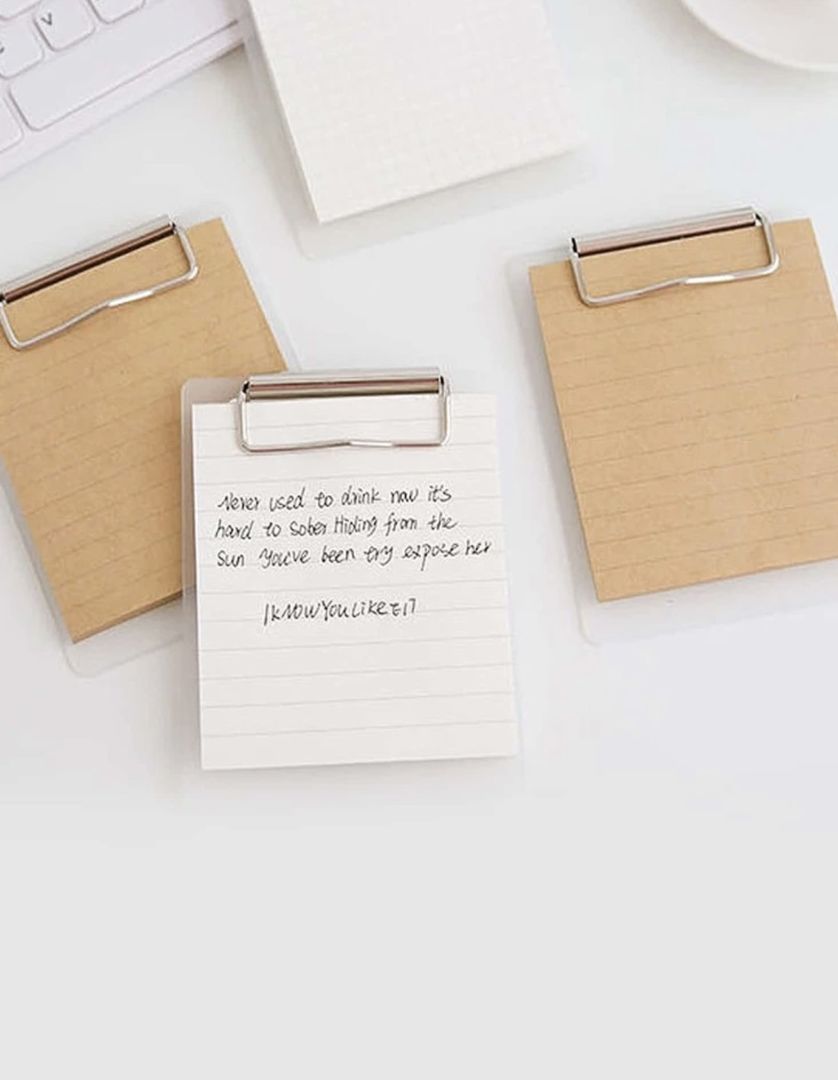 V
Never used to drink now it's
hard to sober Hiding from the
Sun You've been try expose her
I KNOW YOU LIKE IT